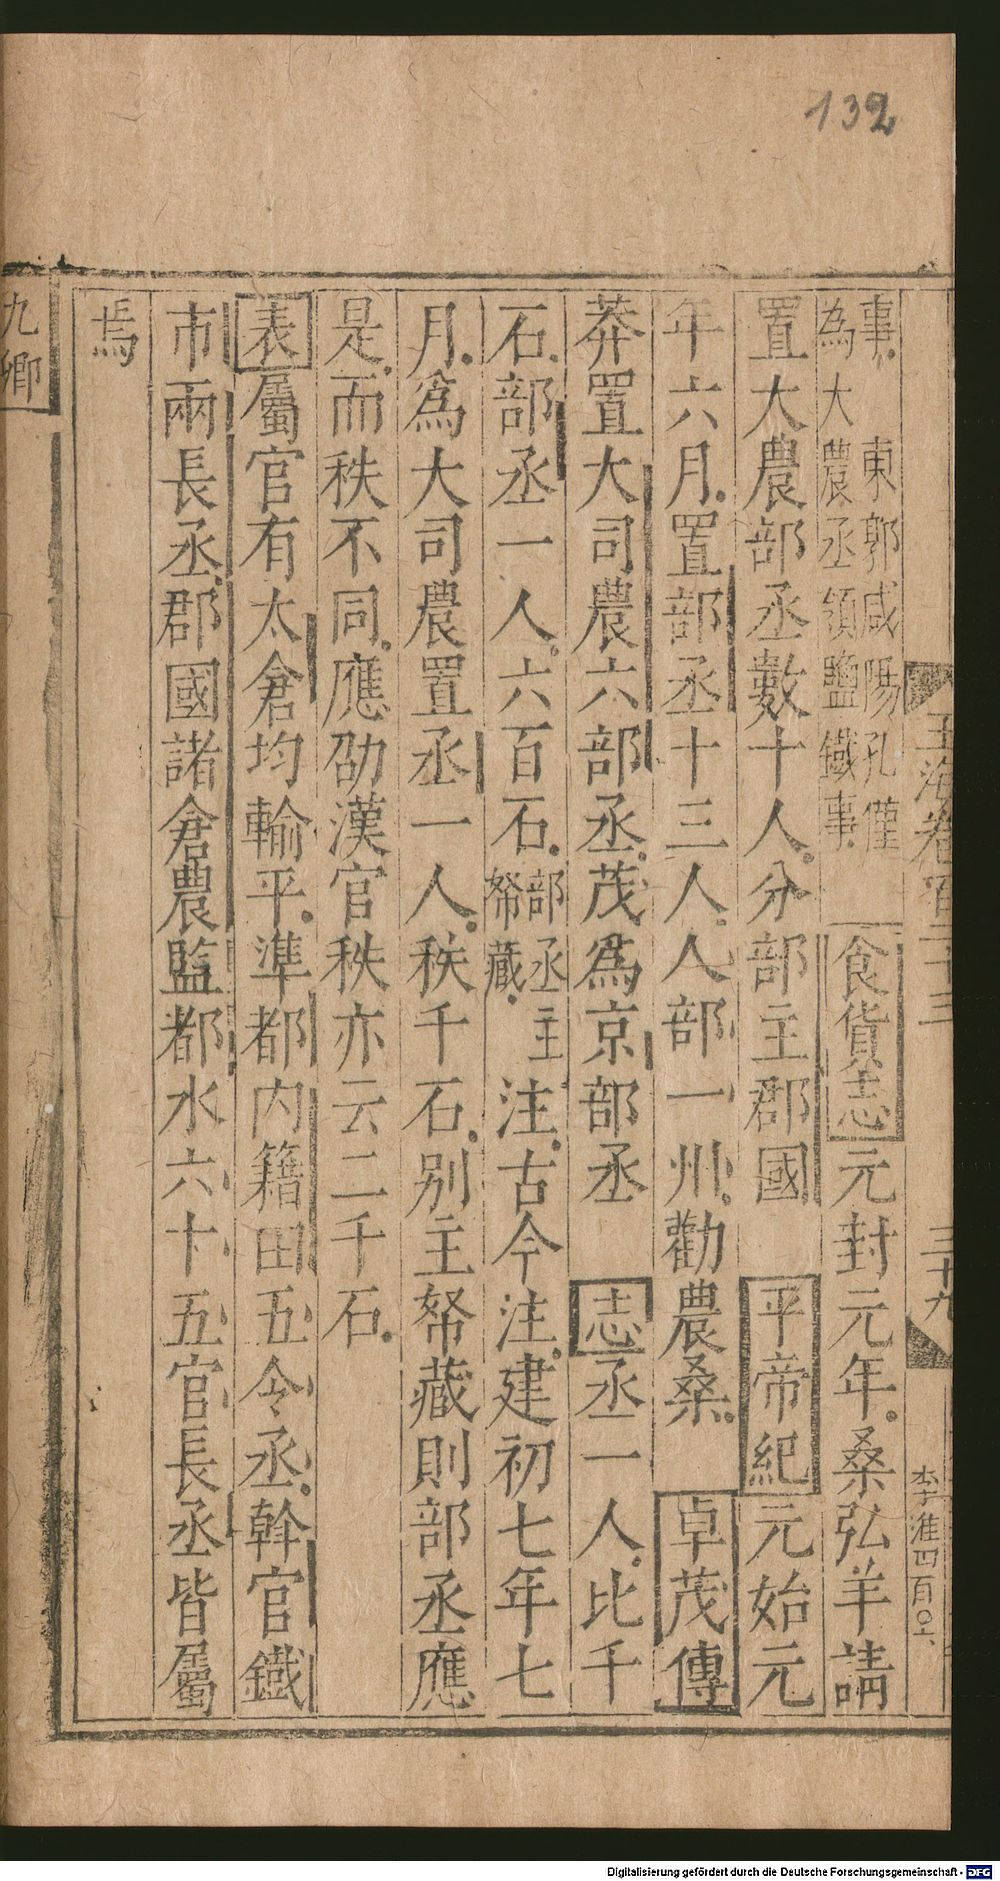 132
玉海卷百二十三
三十九
李淮四百〇六
事東郭咸陽孔僅
為大農丞領鹽鐵事
食貨志元封元年桑弘羊請
置大農部丞數十人分部主郡國 平帝紀元始元
年六月置部丞十三人人部一州勸農桑 卓茂傳
莽置大司農六部丞茂爲京部丞 志丞一人比千
石部丞一人六百石部丞主帑藏注古今注建初七年七
月爲大司農置丞一人秩千石别主帑藏則部丞應
是而秩不同應劭漢官秩亦云二千石
表屬官有太倉均輸平準都内籍田五令丞斡官鐵
市兩長丞郡國諸倉農監都水六十五官長丞皆屬
焉
九卿
Digitalisierung gefördert durch die Deutsche Forschungsgemeinschaft - DFG